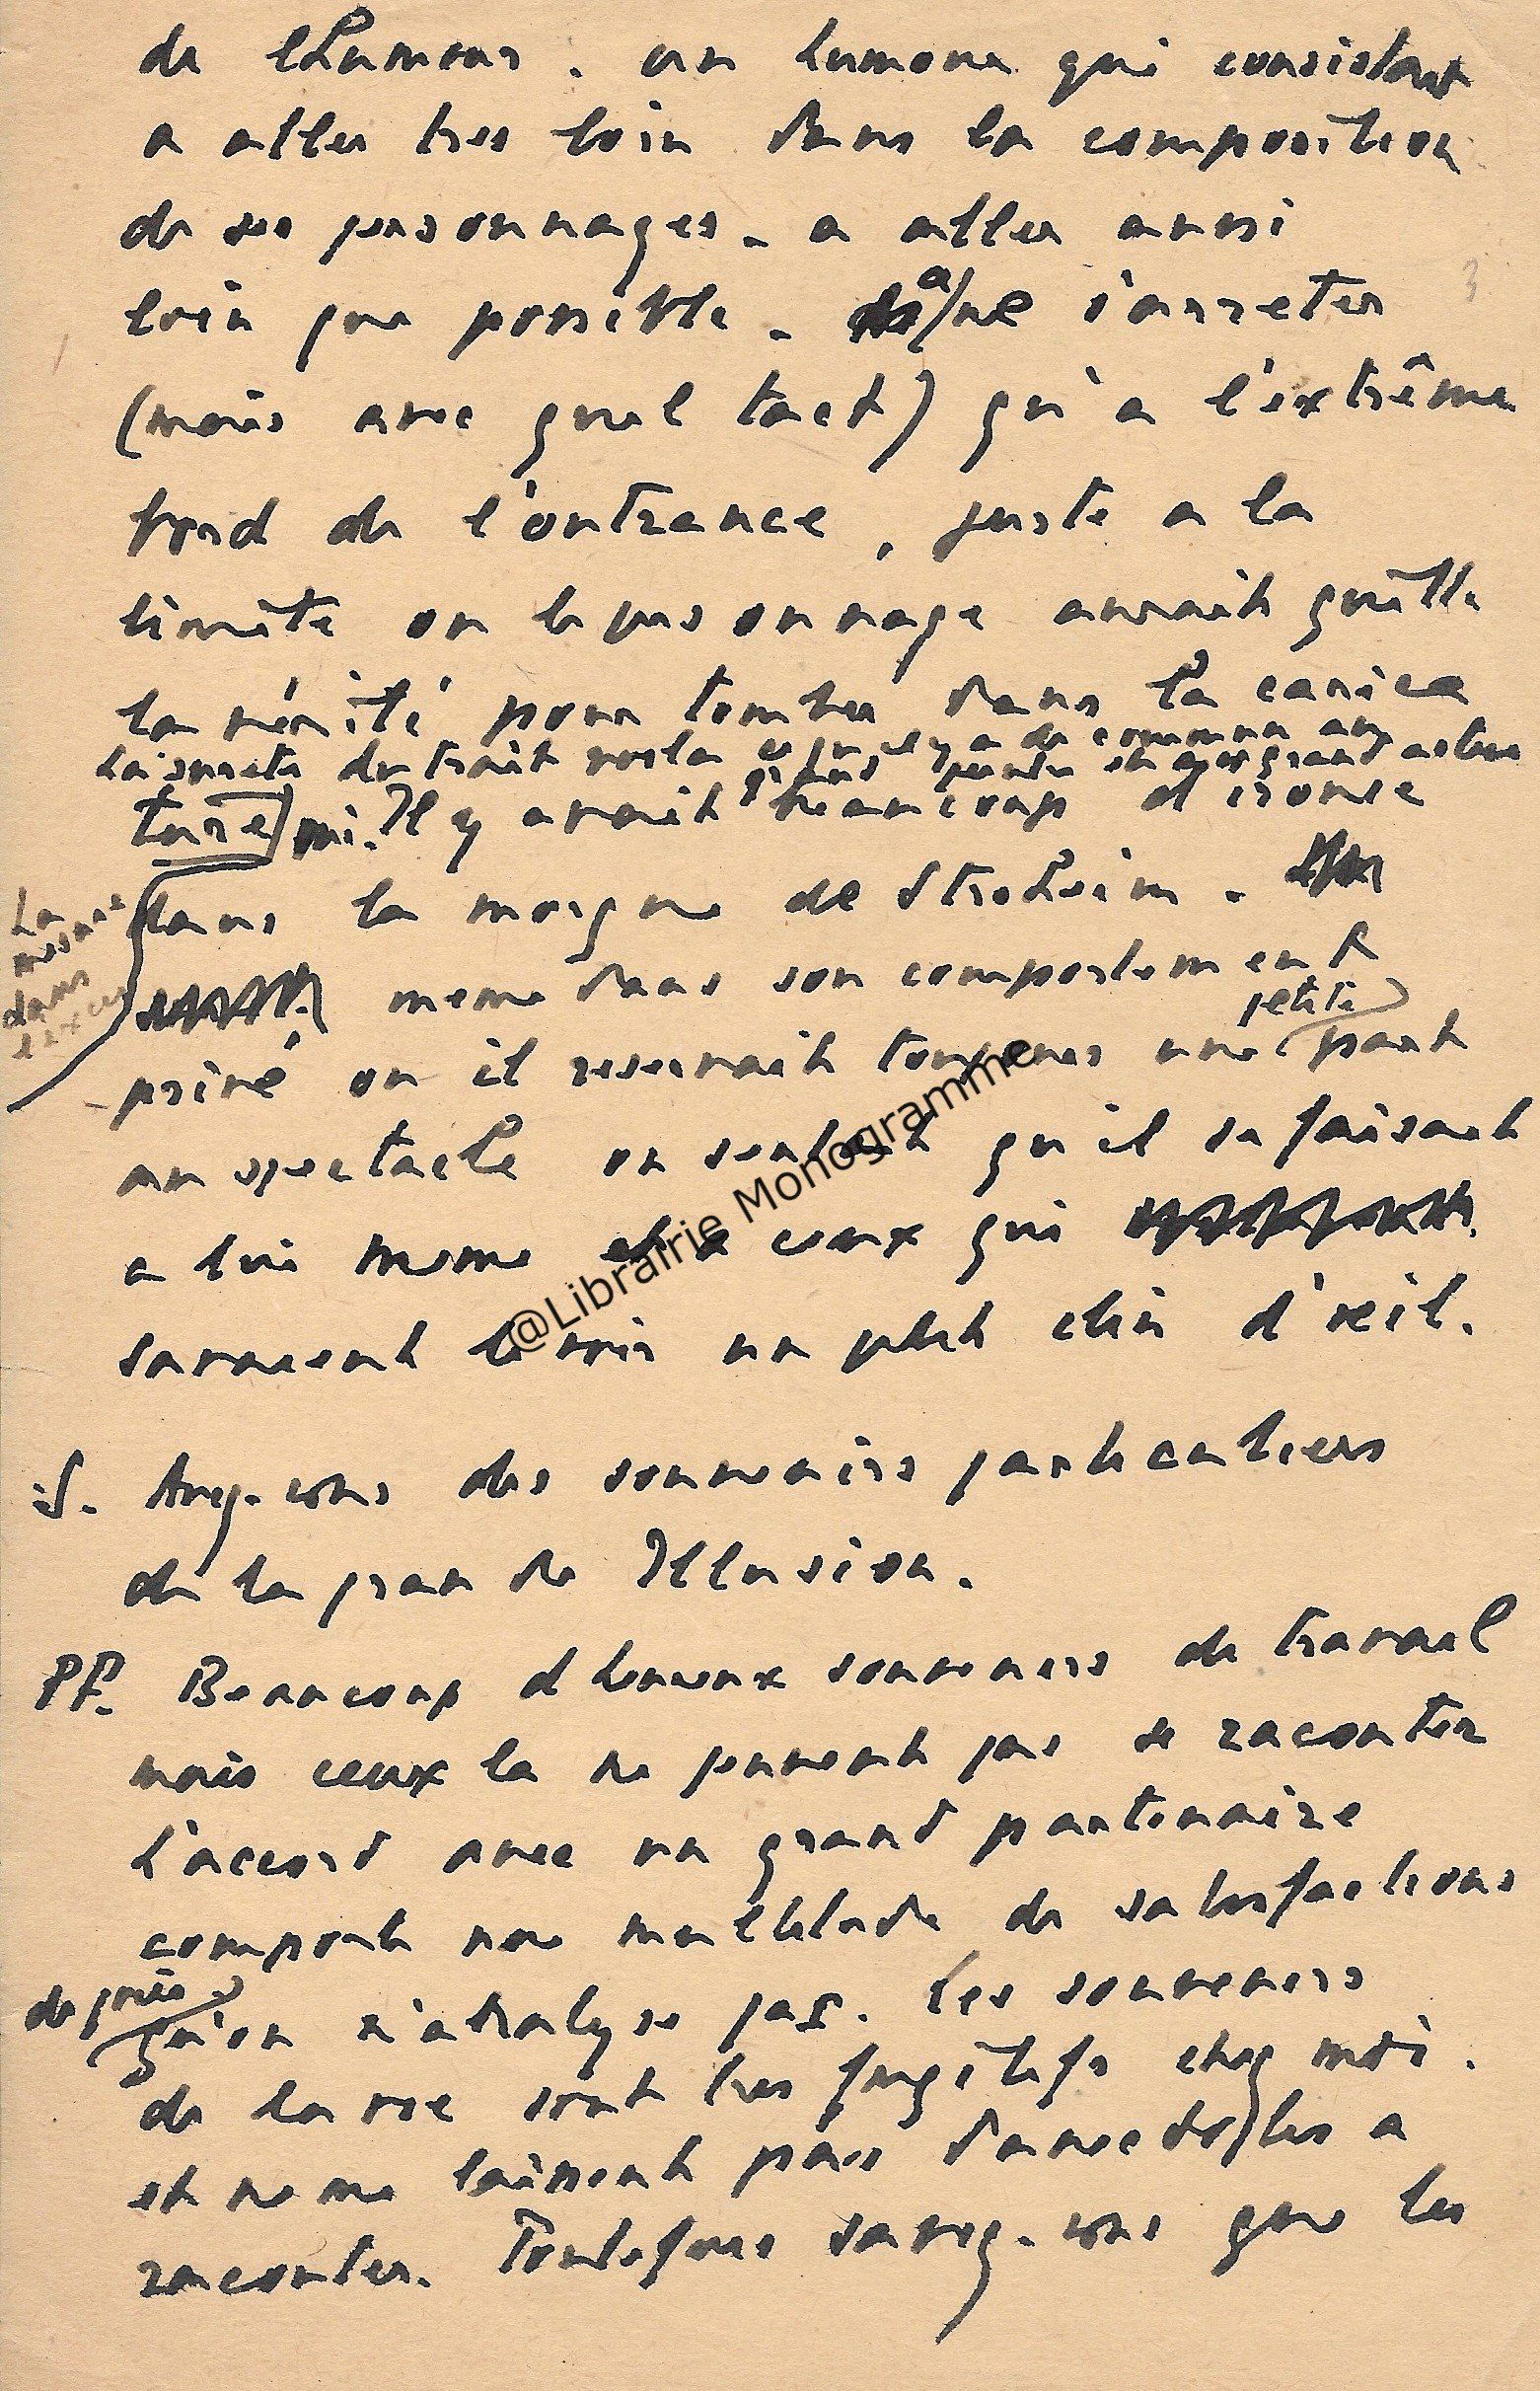 de l'humour. un humour qui consistait
a aller tres loin dans la composition
de ses personnages. a aller aussi
loin que possible. a ne s'arreter
(mais avec quel tact) qu'a l'extrême
bord de l'outrance, juste a la
limite ou le personnage aurait quitté
la vérité pour tomber dans la carica
La sureté du trait voila ce qu'il y a de commun au
grand peintre et au grand acteur
ture/ Il y avait beaucoup d'ironie
La
mesure
dans
l'exces
dans la morgue de Stroheim.
meme dans son comportement
petite
privé ou il reservait toujours une part
au spectacle on sentait qu'il se faisait
a lui meme et a ceux qui
savaient le voir un petit clin d'oeil.
S. Avez-vous des souvenirs particuliers
de la grande Illusion.
PF. Beaucoup d heureux souvenirs de travail
mais ceux la ne peuvent pas se raconter
L'accord avec un grand partenaire
comporte une multitude de satisfactions
qu'on n'analyse pas. Les souvenirs
de la vie sont tres fugitifs chez moi.
et ne me laissent pas d'anecdotes a
raconter. Toutefois savez-vous que les
3
@Librairie Monogramme